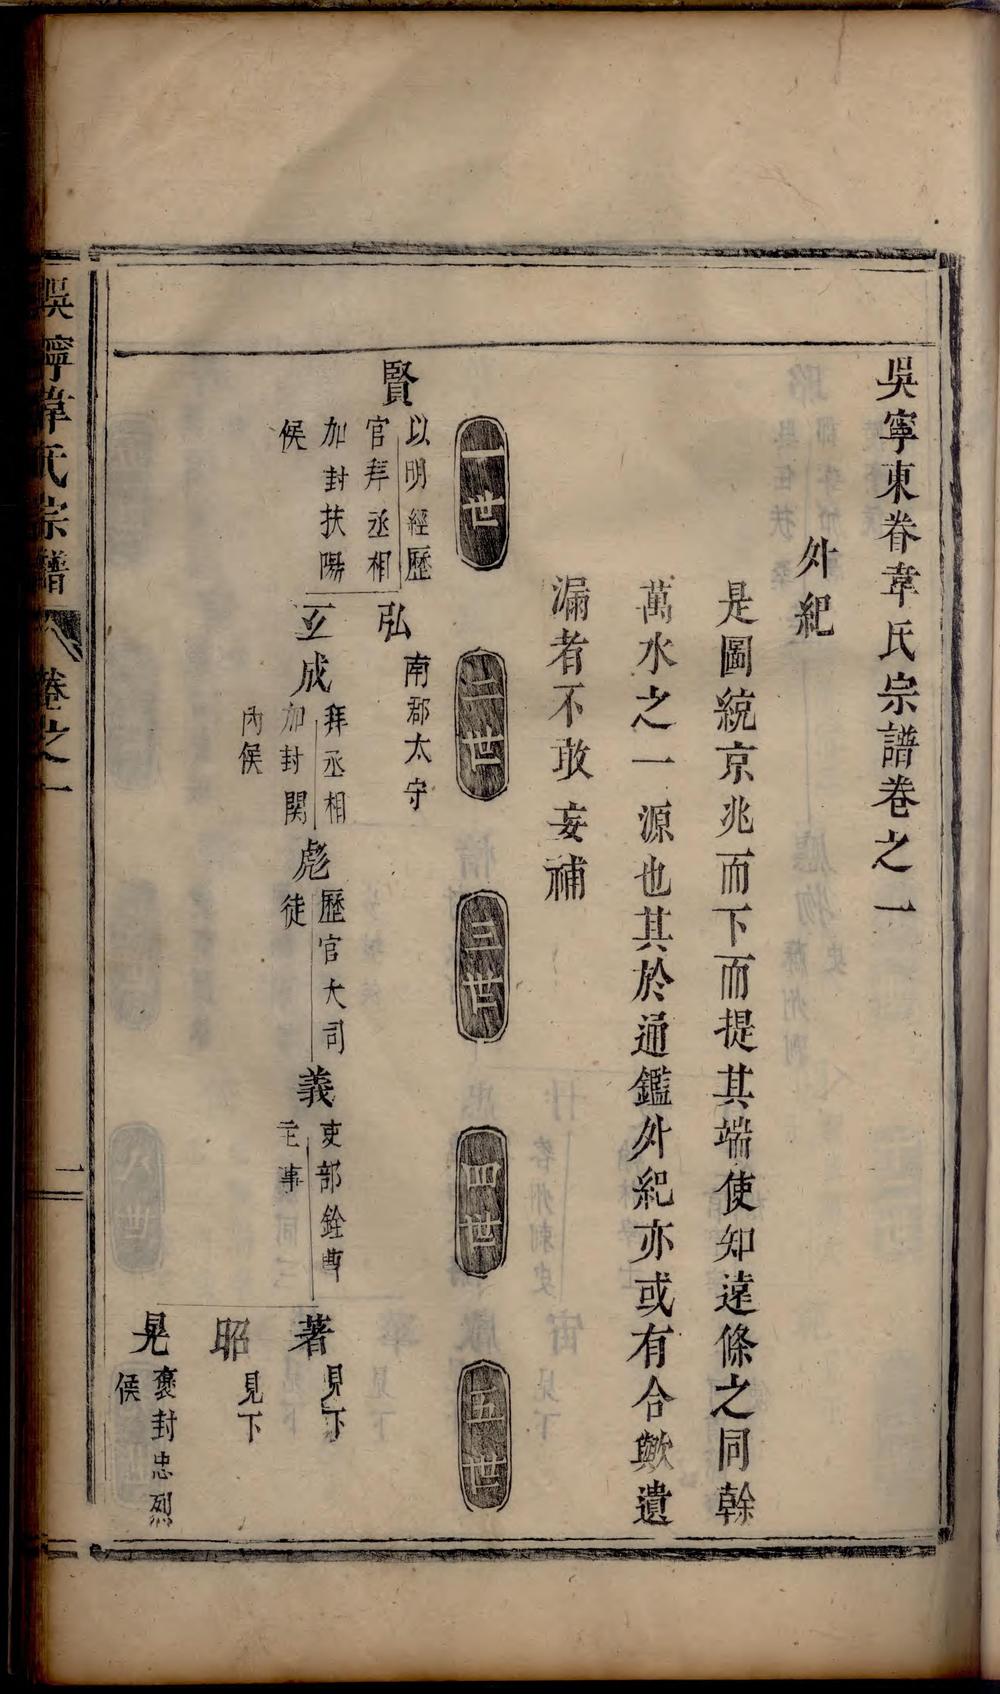 吳寧東眷韋氏宗譜卷之一
外紀
是圖統京兆而下而提其端使知遠條之同幹
萬水之一源也其於通鑑外紀亦或有合歟遺
漏者不敢妄補
一世
二世
三世
四世
五世
賢
以明經歷
官拜丞相
加封扶陽
侯
弘
南郡太守
玄成
拜丞相
加封関
內侯
彪
歷官大司
徒
義
吏部銓曹
主事
著
見下
昭
見下
晃
褒封忠烈
侯
吳寧韋氏宗譜
卷之一
一